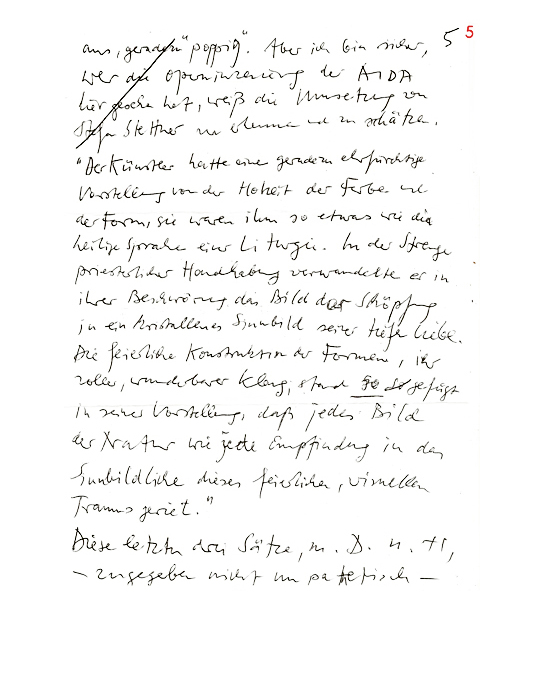 aus, geradezu "poppig". Aber ich bin sicher, 5 5
wer die Operninszenierung der AIDA
hier gesehen hat, weiß die Umsetzung von
Stettner zu erkennen und zu schätzen.
"Der Künstler hatte eine geradezu ehrfürchtige
Vorstellung von der Hoheit der Farbe und
der Form, sie waren ihm so etwas wie die
heilige Sprache einer Liturgie. In der Strenge
priesterlicher Handhabung verwandelte er in
ihrer Beschwörung das Bild der Schöpfung
in ein kristallenes Sinnbild seiner tiefen Liebe.
Die feierliche Konstruktion der Formen, ihr
voller, wunderbarer Klang, stand so gefügt
in seiner Vorstellung, daß jedes Bild
der Natur wie jede Empfindung in das
Sinnbildliche dieses feierlichen, visuellen
Traums geriet."
Diese letzten drei Sätze, m. D. u. H,
– zugegeben nicht un pathetisch –